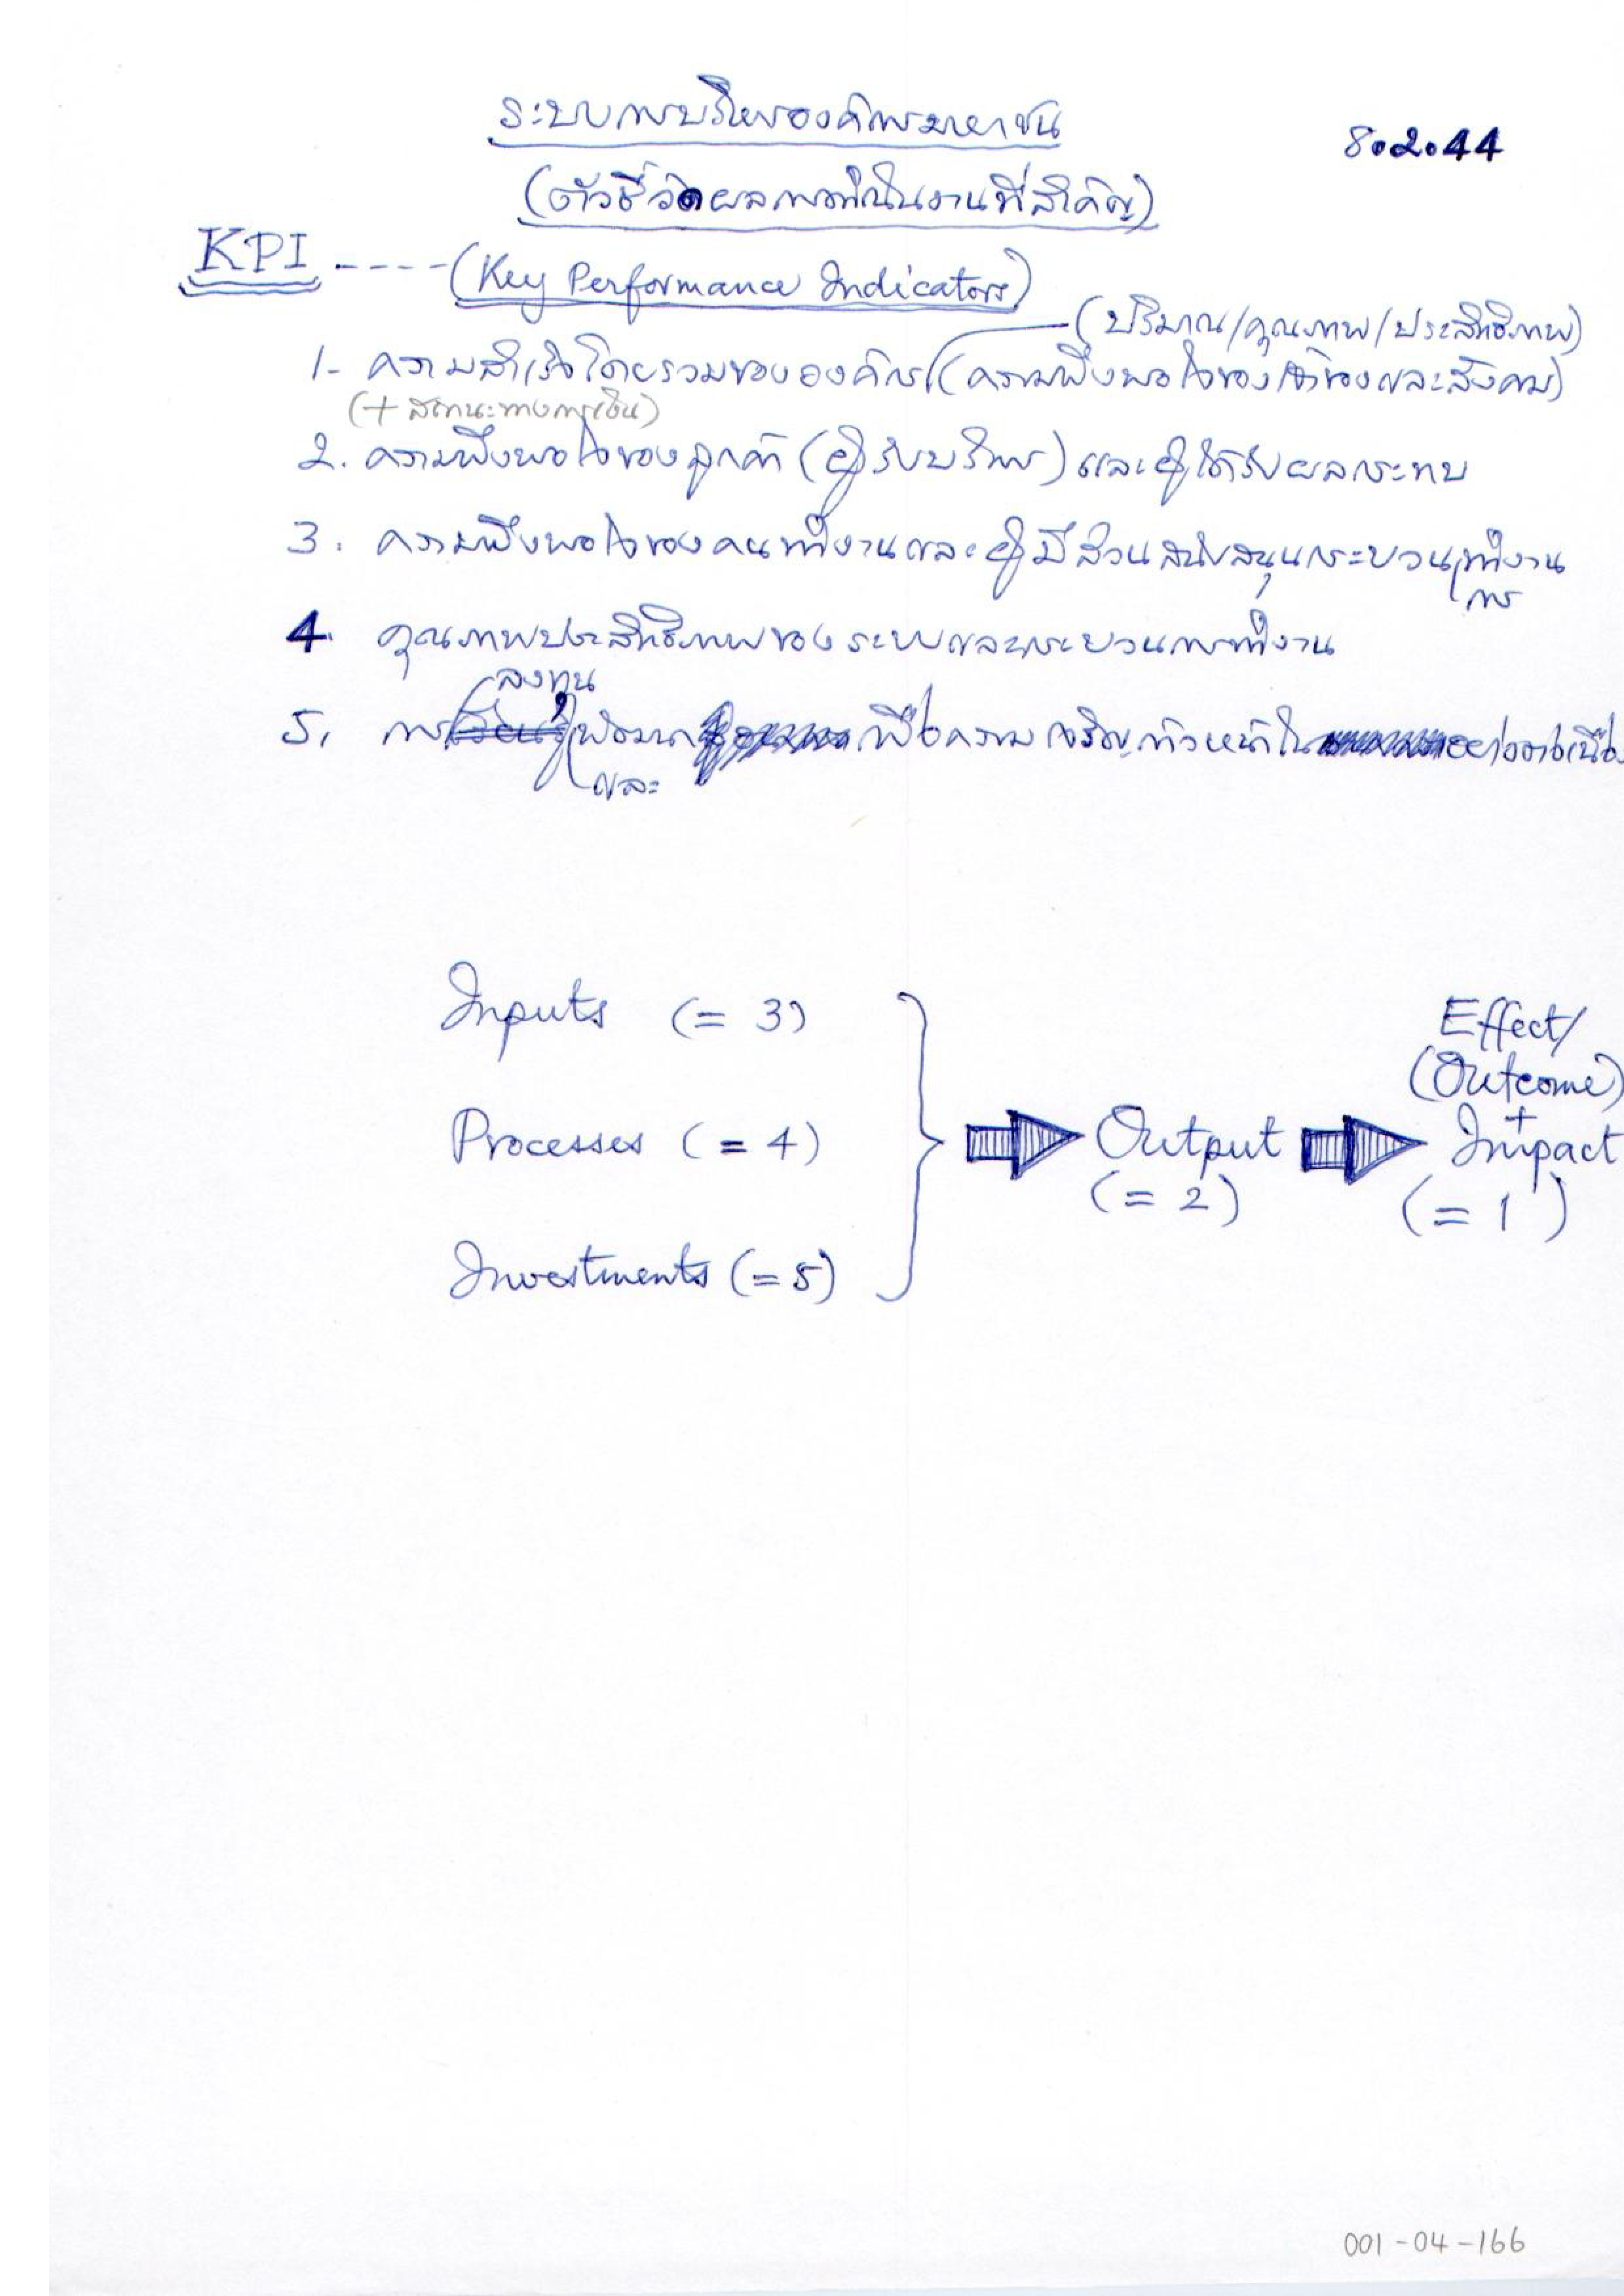 ระบบการบริหารองค์การมหาชน
8.2.44
(ตัวชี้วัดผลการดำเนินงานที่สำคัญ)
KPI ---- (Key Performance Indicators)
(ปริมาณ/คุณภาพ/ประสิทธิภาพ)
1- ความสำเร็จโดยรวมขององค์การ (ความพึงพอใจของเจ้าของและสังคม)
(+ สถานะทางการเงิน)
2. ความพึงพอใจของลูกค้า (ผู้รับบริการ) และผู้ได้รับผลกระทบ
3. ความพึงพอใจของคนทำงานและผู้มีส่วนสนับสนุนกระบวนการทำงาน
4. คุณภาพประสิทธิภาพของระบบและกระบวนการทำงาน
ลงทุน
5. การเรียนรู้พัฒนา เพื่อความเจริญก้าวหน้า อย่างต่อเนื่อง
และ
Inputs (= 3)
Processes (= 4)
Investments (= 5)
Output
(= 2)
Effect/
(Outcome)
+
Impact
(= 1)
001-04-166